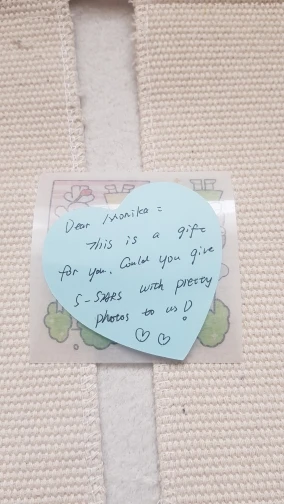 Dear Monika:
This is a gift
for you. Could you give
5-STARS with pretty
photos to us!
♡ ♡